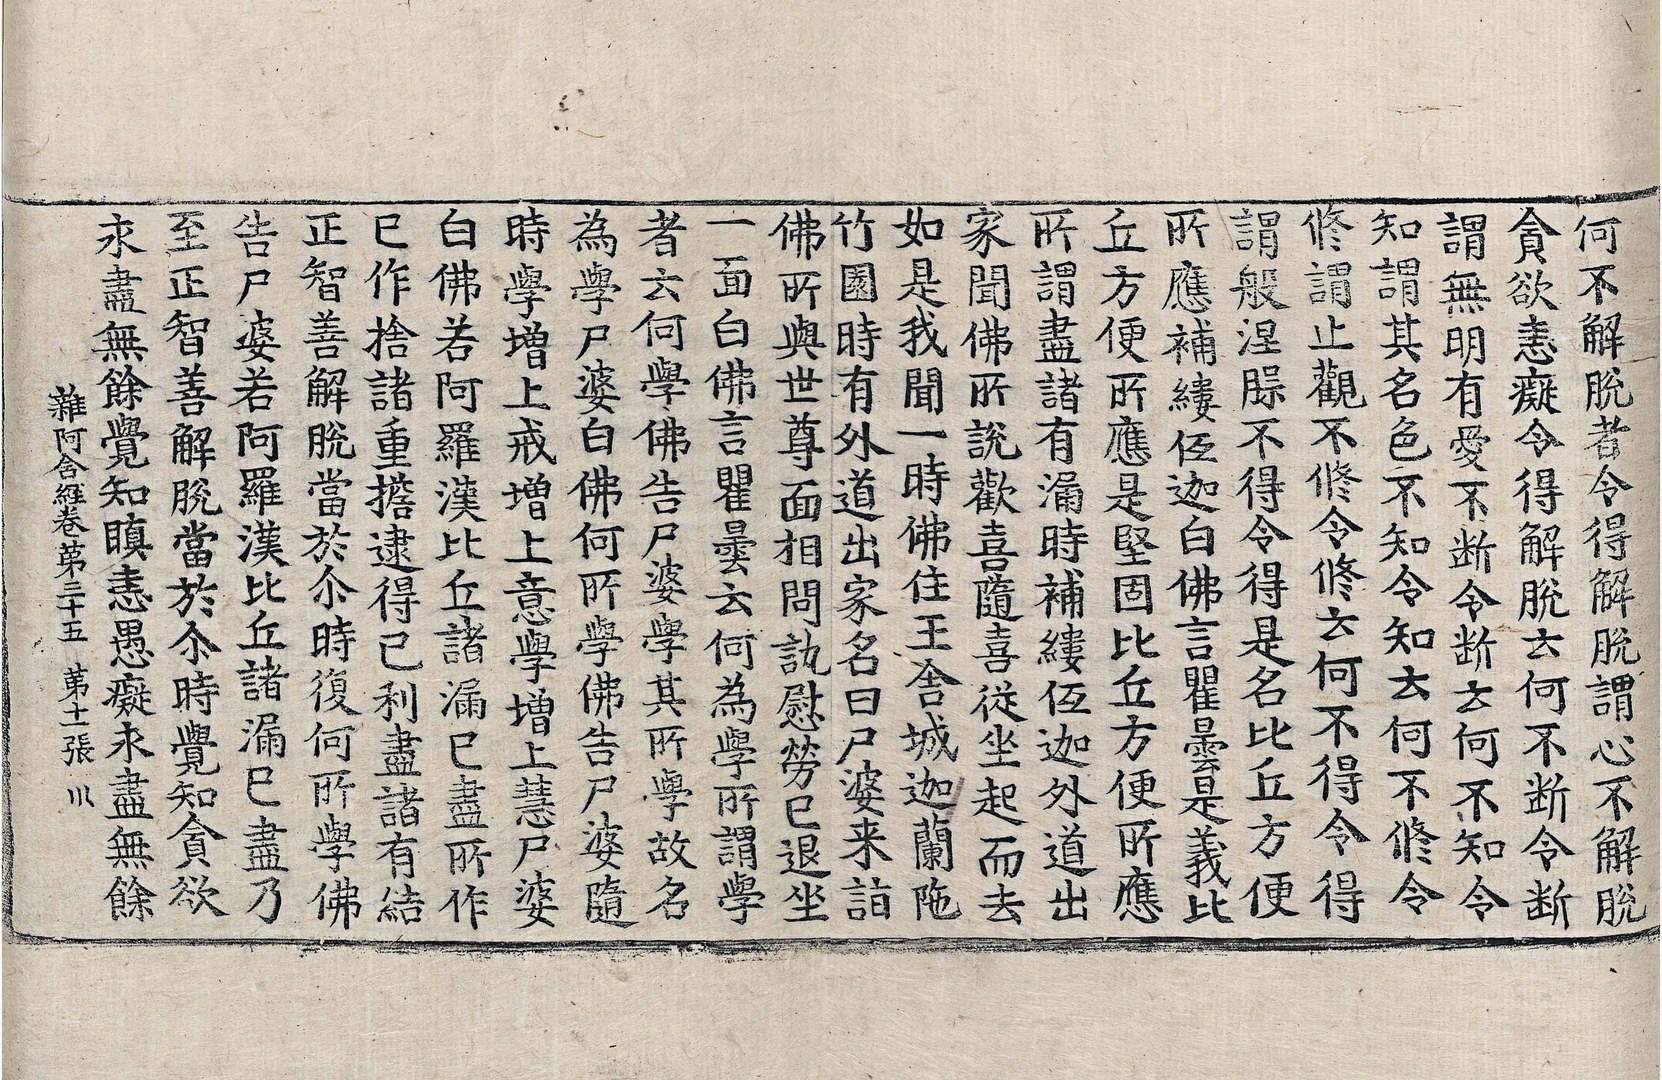 何不解脫者令得解脫謂心不解脫
貪欲恚癡令得解脫云何不断令断
謂無明有愛不断令断云何不知令
知謂其名色不知令知云何不修令
修謂止觀不修令修云何不得令得
謂般涅槃不得令得是名比丘方便
所應補縷伍迦白佛言瞿曇是義比
丘方便所應是堅固比丘方便所應
所謂盡諸有漏時補縷伍迦外道出
家聞佛所說歡喜隨喜從坐起而去
如是我聞一時佛住王舍城迦蘭陁
竹園時有外道出家名曰尸婆来詣
佛所與世尊面相問訊慰勞已退坐
一面白佛言瞿曇云何為學所謂學
者云何學佛告尸婆學其所學故名
為學尸婆白佛何所學佛告尸婆隨
時學增上戒增上意學增上慧尸婆
白佛若阿羅漢比丘諸漏已盡所作
已作捨諸重擔逮得已利盡諸有結
正智善解脫當於尒時復何所學佛
告尸婆若阿羅漢比丘諸漏已盡乃
至正智善解脫當於尒時覺知貪欲
永盡無餘覺知瞋恚愚癡永盡無餘
雜阿含經卷第三十五 第十一張 川